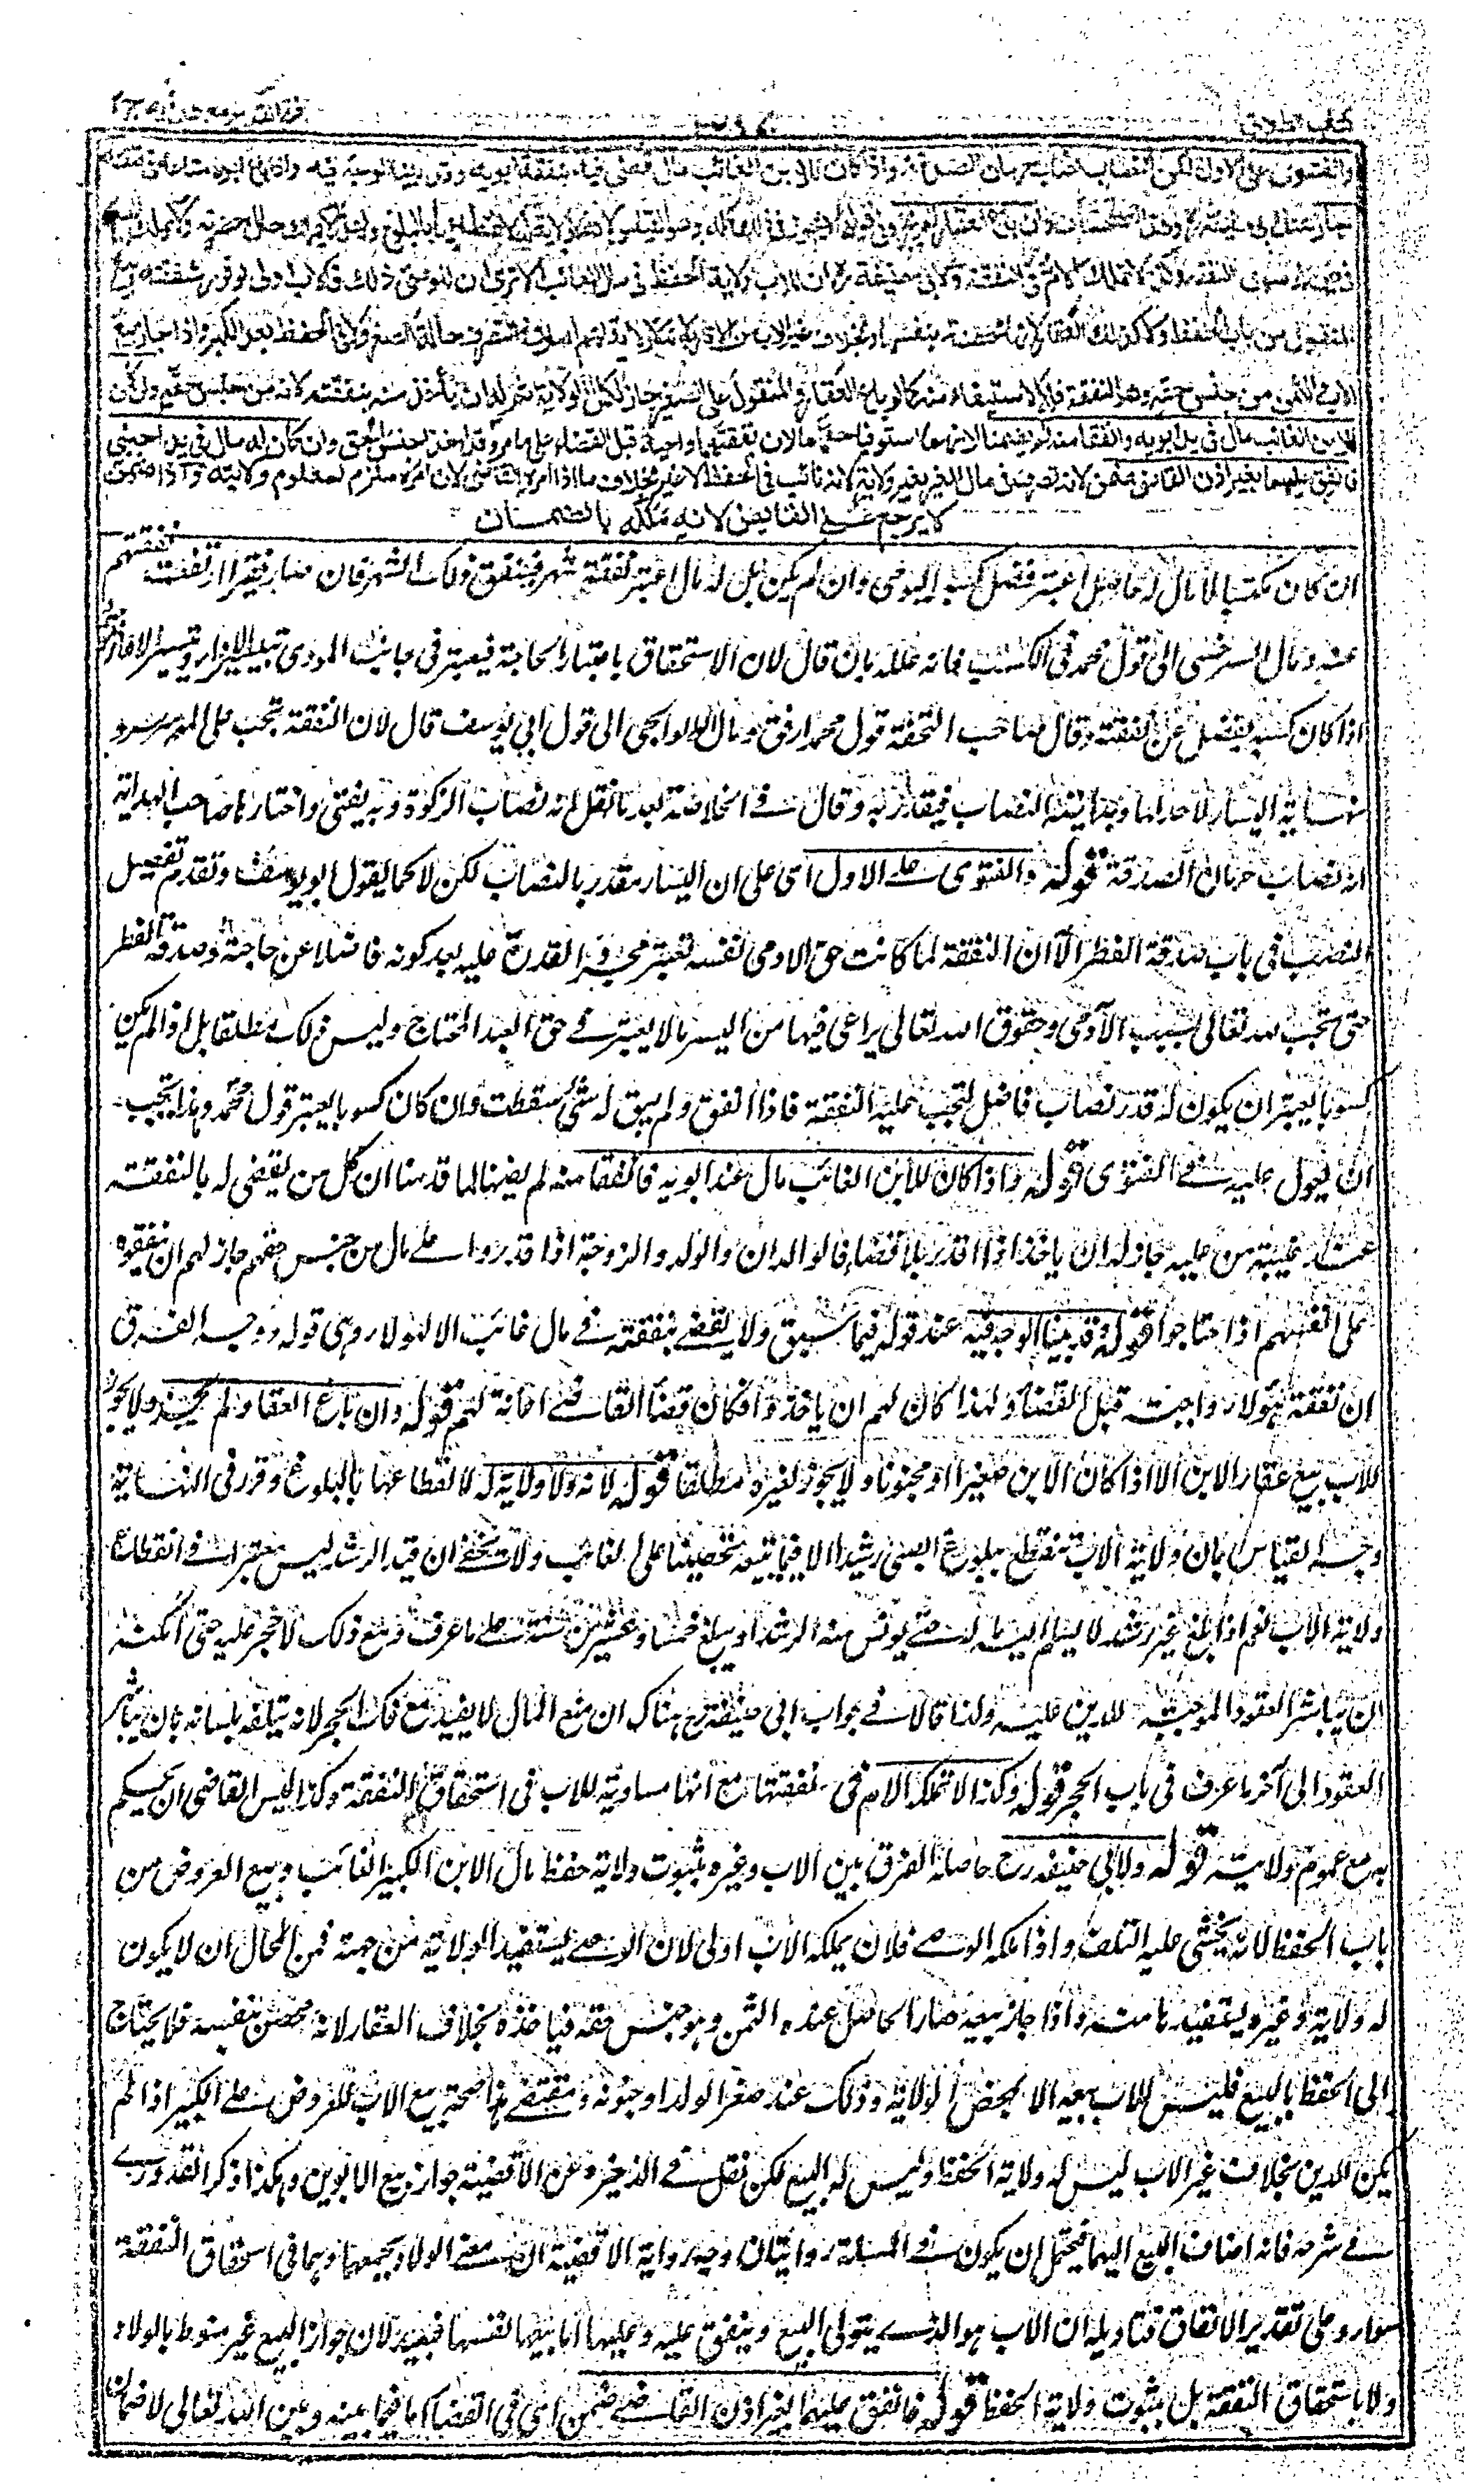 كتاب الطلاق
والفتوى على الاول لكن النصاب نصاب حرمان الصدقة واذا كان للابن الغائب مال قضى فيه بنفقة ابويه وقد بينا الوجه فيه واذا باع ابوه متاعه في نفقته
جاز عند ابي حنيفة وهذا استحسان وان باع العقار لم يجز وفي قولهما لا يجوز في ذلك كله وهو القياس لانه لا ولاية له لانقطاعها بالبلوغ ولهذا لا يملك في حال حضرته ولا يملك البيع
في دين له سوى النفقة وكذا لا تملك الام في النفقة ولابي حنيفة ان للاب ولاية الحفظ في مال الغائب الا ترى ان للوصي ذلك فالاب اولى لوفور شفقته وبيع
المنقول من باب الحفظ ولا كذلك العقار لانها محصنة بنفسها وبخلاف غير الاب من الاقارب لانه لا ولاية لهم اصلا في التصرف حالة الصغر ولا في الحفظ بعد الكبر واذا جاز بيع
الاب والثمن من جنس حقه وهو النفقة فله الاستيفاء منه كما لو باع العقار والمنقول على الصغير جاز لكمال الولاية ثم له ان يأخذ منه بنفقته لانه من جنس حقه وان كان
للابن الغائب مال في يد ابويه وانفقا منه لم يضمنا لانهما استوفيا حقهما لان نفقتهما واجبة قبل القضاء على ما مر وقد اخذا جنس الحق وان كان له مال في يد اجنبي
فانفق عليهما بغير اذن القاضي ضمن لانه تصرف في مال الغير بغير ولاية لانه نائب في الحفظ لا غير بخلاف ما اذا امره القاضي لان امره ملزم لعموم ولايته واذا ضمن
لا يرجع على القابض لانه ملكه بالضمان
ان كان مكتسبا لا مال له حاصل اعتبر فضل كسبه اليومي وان لم يكن بل له مال اعتبر نفقة شهر فينفق ذلك الشهر فان صار فقيرا ارتفعت نفقتهم
عنه ومال السرخسي الى قول محمد في الكسب فانه علله بان قال لان الاستحقاق باعتبار الحاجة فيعتبر في جانب المودي تيسير الاداء وتيسر الاداء موجود
اذا كان كسبه يفضل عن نفقته وقال صاحب التحفة قول محمد ارفق ومال الولوالجي الى قول ابي يوسف قال لان النفقة تجب على الموسر و
نهاية اليسار لا حد لها وبدايته النصاب فيقدر به وقال في الخلاصة بعد ما نقل انه نصاب الزكوة وبه يفتى واختار صاحب الهداية
انه نصاب حرمان الصدقة قوله والفتوى على الاول اى على ان اليسار مقدر بالنصاب لكن لا كما يقول ابو يوسف وتقدم تفصيل
النصب في باب صدقة الفطر الا ان النفقة لما كانت حق الآدمي نفسه تعتبر مجرد القدرة عليه بعد كونه فاضلا عن حاجته وصدقة الفطر
حق تجب لله تعالى بسبب الآدمي وحقوق الله تعالى يراعى فيها من اليسر ما لا يعتبر في حق العبد المحتاج وليس ذلك مطلقا بل اذا لم يكن
كسوبا يعتبر ان يكون له قدر نصاب فاضل لتجب عليه النفقة فاذا انفق ولم يبق له شئ سقطت وان كان كسوبا يعتبر قول محمد وهذا يجب
ان يعول عليه في الفتوى قوله واذا كان للابن الغائب مال عند ابويه فانفقا منه لم يضمنا لما قدمنا ان كل من يقضى له بالنفقة
عند غيبة من عليه جاز له ان ياخذ اذا قدر بلا قضاء فالوالدان والولد والزوجة اذا قدروا على مال من جنس حقهم جاز لهم ان ينفقوه
على انفسهم اذا احتاجوا قوله وقد بينا الوجه فيه عند قوله فيما سبق ولا يقضى بنفقة في مال غائب الا لهؤلاء وهى قوله ووجه الفرق
ان نفقة هؤلاء واجبة قبل القضاء ولهذا كان لهم ان ياخذوا فكان قضاء القاضي اعانة لهم قوله وان باع العقار لم يجز ولا يجوز
للاب بيع عقار الابن الا اذا كان الابن صغيرا او مجنونا ولا يجوز لغيره مطلقا قوله لانه لا ولاية له لانقطاعها بالبلوغ وقرر في النهاية
وجه القياس بان ولاية الاب تنقطع ببلوغ الصبي رشيدا الا فيما يبيعه تحصينا على الغائب ولا يخفى ان قيد الرشد ليس معتبرا في انقطاع
ولاية الاب نعم اذا بلغ غير رشيد لا يسلم اليه ماله حتى يونس منه الرشد او يبلغ خمسا وعشرين سنة على ما عرف ومع ذلك لا حجر عليه حتى امكنه
ان يباشر العقود الموجبة للدين عليه ولذا قالا في جواب ابي حنيفة رح هناك ان منع المال لا يفيد مع فك الحجر لانه يتلفه بلسانه بان يباشر
العقود الى آخر ما عرف في باب الحجر قوله وكذا لا تملكه الام في نفقتها مع انها مساوية للاب في استحقاق النفقة وكذا ليس للقاضي ان يحكم
به مع عموم ولايته قوله ولابي حنيفة رح حاصله الفرق بين الاب وغيره بثبوت ولاية حفظ مال الابن الكبير الغائب وبيع العروض من
باب الحفظ لانه يخشى عليه التلف واذا ملكه الوصي فلان يملكه الاب اولى لان الوصي يستفيد الولاية من جهته فمن المحال ان لا يكون
له ولاية وغيره يستفيدها منه واذا جاز بيعه صار الحاصل عنده الثمن وهو جنس حقه فياخذه بخلاف العقار لانه محصن بنفسه فلا يحتاج
الى الحفظ بالبيع فليس للاب بيعه الا بمحض الولاية وذلك عند صغر الولد او جنونه ومقتضى هذا صحة بيع الاب للعروض على الكبير اذا لم
يكن للدين بخلاف غير الاب ليس له ولاية الحفظ وليس له البيع لكن نقل في الذخيرة عن الاقضية جواز بيع الابوين وهكذا ذكر القدوري
في شرحه فانه اضاف البيع اليهما فيحتمل ان يكون في المسئلة روايتان وجه رواية الاقضية ان معنى الولاد يجمعهما وهما في استحقاق النفقة
سواء وعلى تقدير الاتفاق فتاويله ان الاب هو الذي يتولى البيع وينفق عليه وعليها اما بيعها بنفسها فبعيد لان جواز البيع غير منوط بالولاد
ولا باستحقاق النفقة بل بثبوت ولاية الحفظ قوله فانفق عليهما بغير اذن القاضي ضمن اى في القضاء اما فيما بينه وبين الله تعالى لا ضمان